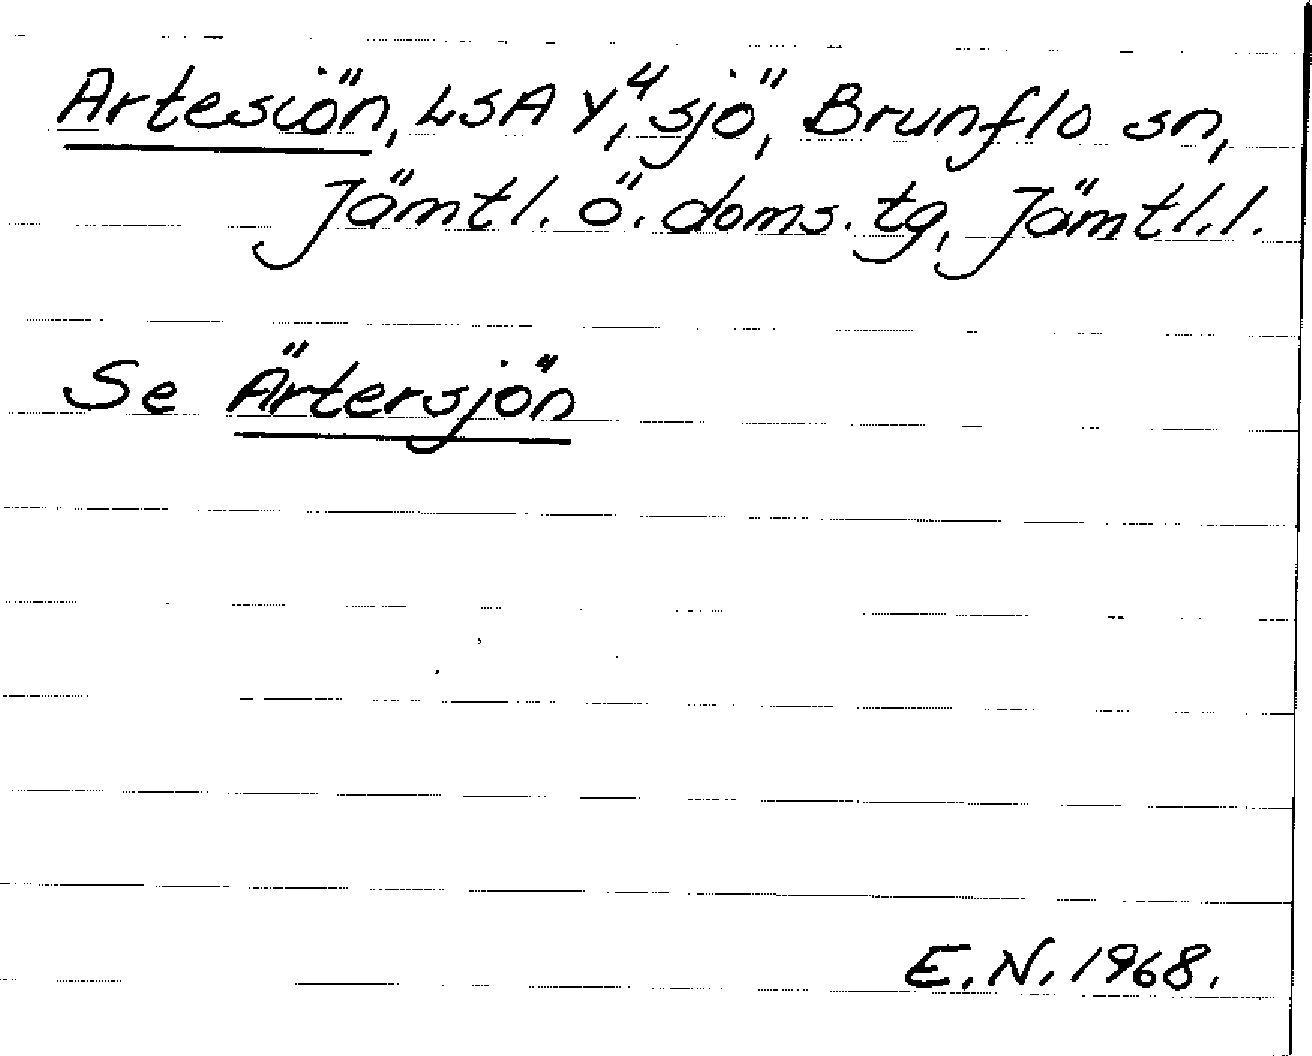 Artesiön, LSA Y⁴, sjö, Brunflo sn,
Jämtl. ö. doms. tg, Jämtl. l.
Se Ärtersjön
E. N. 1968.